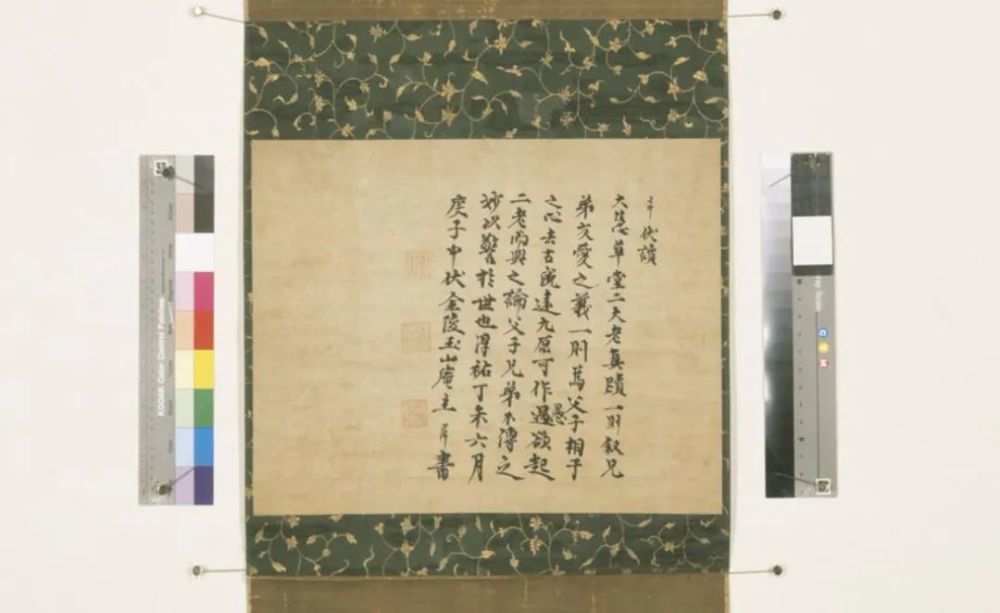 伏讀
大慧草堂二大老真蹟一則叙兄
弟友愛之義一則篤父子相予
之心去古寖遠九原可作愚欲起
二老而與之論父子兄弟不傳之
妙以警於世也淳祐丁未六月
庚子中伏金陵玉山庵主 書
KODAK Color Control Patches